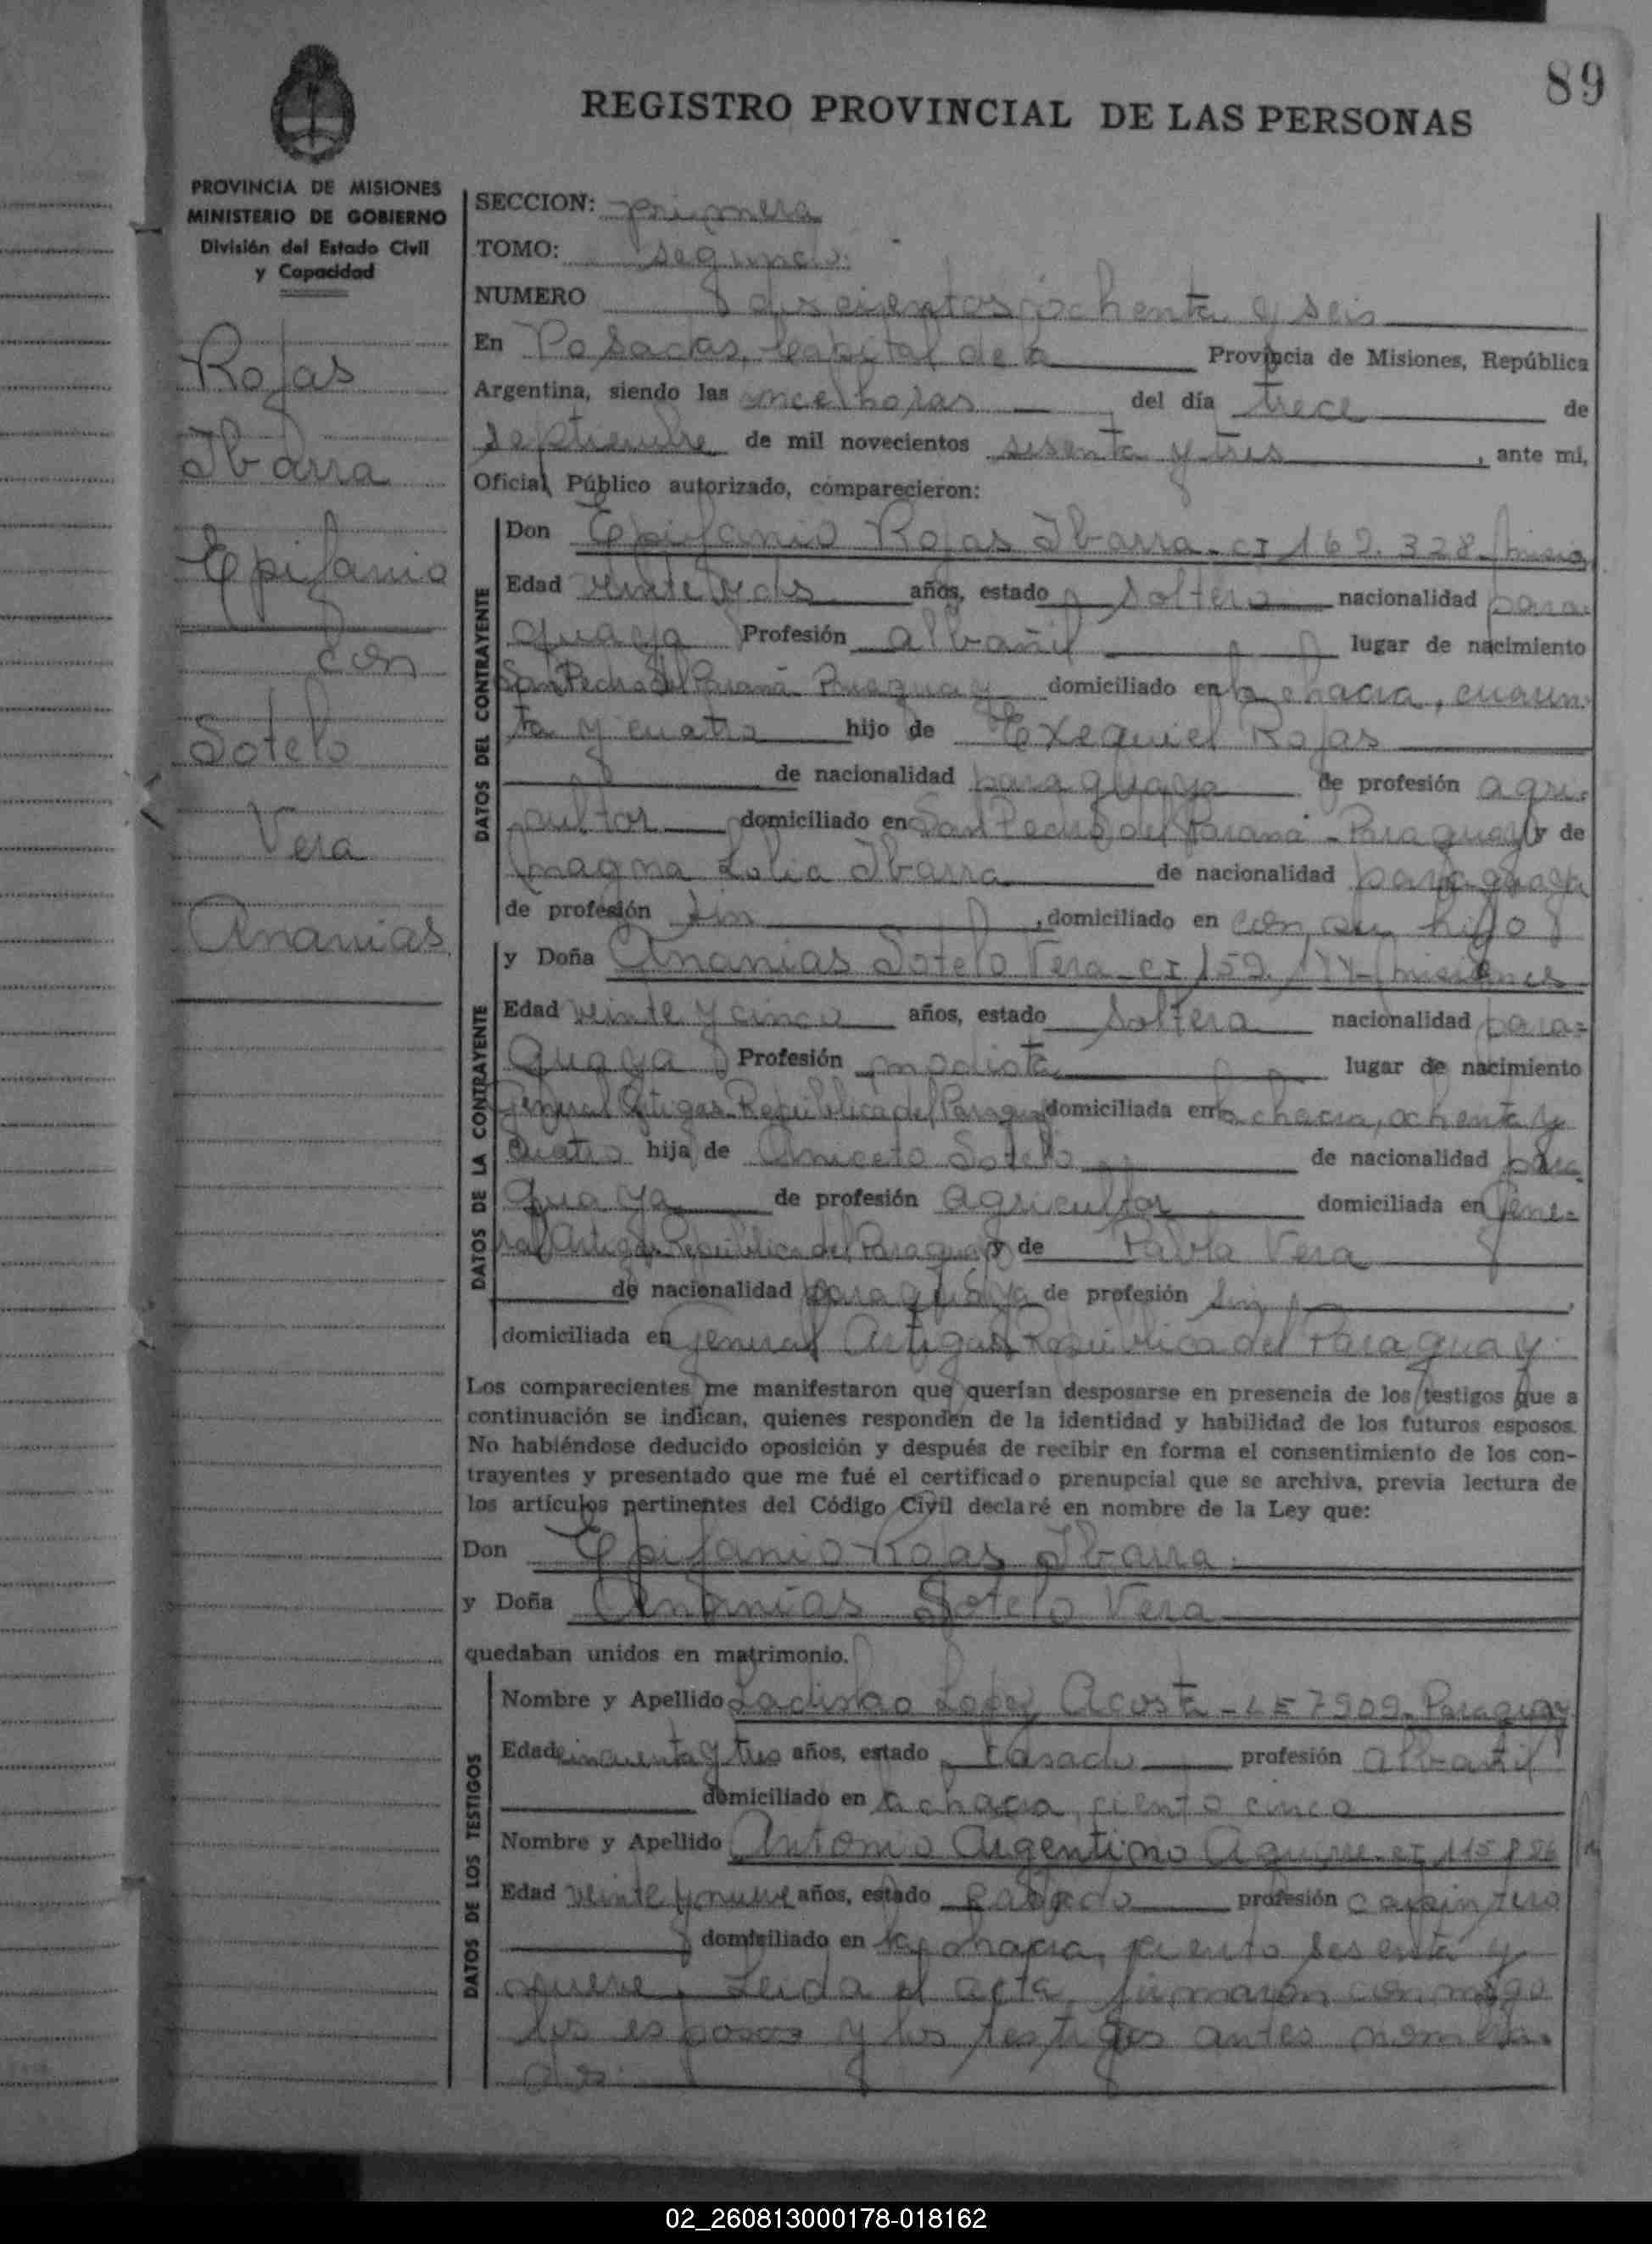 89
REGISTRO PROVINCIAL DE LAS PERSONAS
PROVINCIA DE MISIONES
MINISTERIO DE GOBIERNO
División del Estado Civil
y Capacidad
Rojas
Ibarra
Epifanio
con
Sotelo
Vera
Ananias
SECCION: primera
TOMO: segundo.
NUMERO doscientos ochenta y seis
En Posadas, Capital de la Provincia de Misiones, República
Argentina, siendo las once horas del día trece de
septiembre de mil novecientos sesenta y tres, ante mi,
Oficial Público autorizado, comparecieron:
DATOS DEL CONTRAYENTE
Don Epifanio Rojas Ibarra - CI 169.328-
Edad veinte y dos años, estado soltero nacionalidad para-
guaya Profesión albañil lugar de nacimiento
San Pedro del Paraná Paraguay domiciliado en la chacra, cuaren-
ta y cuatro hijo de Exequiel Rojas
de nacionalidad paraguaya de profesión agri-
cultor domiciliado en San Pedro del Paraná - Paraguay y de
Magna Ibarra de nacionalidad paraguaya
de profesión sin, domiciliado en con su hijo
DATOS DE LA CONTRAYENTE
y Doña Ananias Sotelo Vera - CI Misiones
Edad veinte y cinco años, estado soltera nacionalidad para-
guaya Profesión modista lugar de nacimiento
General Artigas República del Paraguay domiciliada en la chacra, ochenta y
cuatro hija de Aniceto Sotelo de nacionalidad para-
guaya de profesión agricultor domiciliada en Gene-
ral Artigas República del Paraguay y de Pabla Vera
de nacionalidad paraguaya de profesión sin,
domiciliada en General Artigas República del Paraguay.
Los comparecientes me manifestaron que querían desposarse en presencia de los testigos que a
continuación se indican, quienes responden de la identidad y habilidad de los futuros esposos.
No habiéndose deducido oposición y después de recibir en forma el consentimiento de los con-
trayentes y presentado que me fué el certificado prenupcial que se archiva, previa lectura de
los artículos pertinentes del Código Civil declaré en nombre de la Ley que:
Don Epifanio Rojas Ibarra
y Doña Ananias Sotelo Vera
quedaban unidos en matrimonio.
DATOS DE LOS TESTIGOS
Nombre y Apellido Ladislao Lopez Acosta - LE 7909 - Paraguay
Edad cincuenta y tres años, estado casado profesión albañil
domiciliado en la chacra, ciento cinco
Nombre y Apellido Antonio Argentino Aguirre - CI
Edad veinte y nueve años, estado casado profesión carpintero
domiciliado en la chacra, ciento sesenta y
nueve. Leida el acta, firmaron conmigo
los esposos y los testigos antes nombra-
dos.
02_260813000178-018162